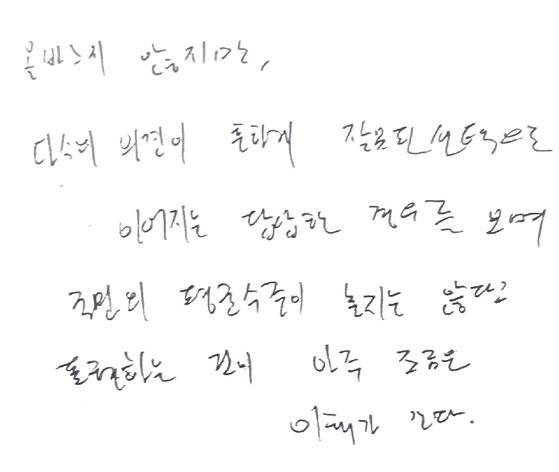 올바르지 않지만,
다수의 의견이 흔하게 잘못된 선택으로
이어지는 답답한 경우를 보며
국민의 평균수준이 높지는 않다고
표현하는 것이 아주 조금은
이해가 간다.